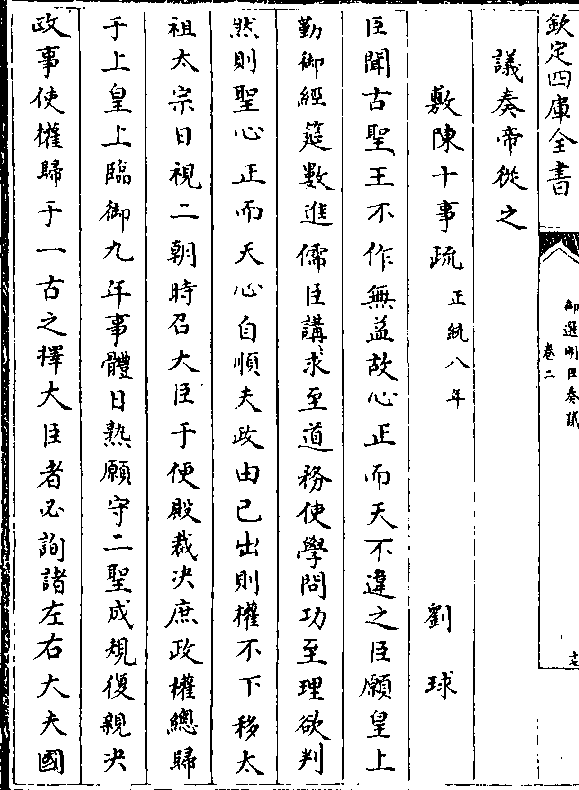 欽定四庫全書
御選明臣奏議
卷二
議奏帝從之
敷陳十事疏 正統八年 劉球
臣聞古聖王不作無益故心正而天不違之臣願皇上
勤御經筵數進儒臣講求至道務使學問功至理欲判
然則聖心正而天心自順夫政由己出則權不下移太
祖太宗日視二朝時召大臣于便殿裁決庶政權總歸
于上皇上臨御九年事體日熟願守二聖成規復親決
政事使權歸于一古之擇大臣者必詢諸左右大夫國